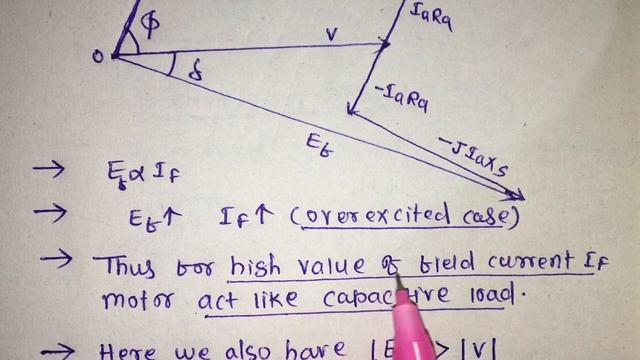 IaRa
ϕ
V
O
δ
-IaRa
-JIaXs
Eb
→ Eb α If
→ Eb↑ If↑ (overexcited case)
→ Thus for high value of field current If
motor act like capacitive load.
→ Here we also have |E > |V|